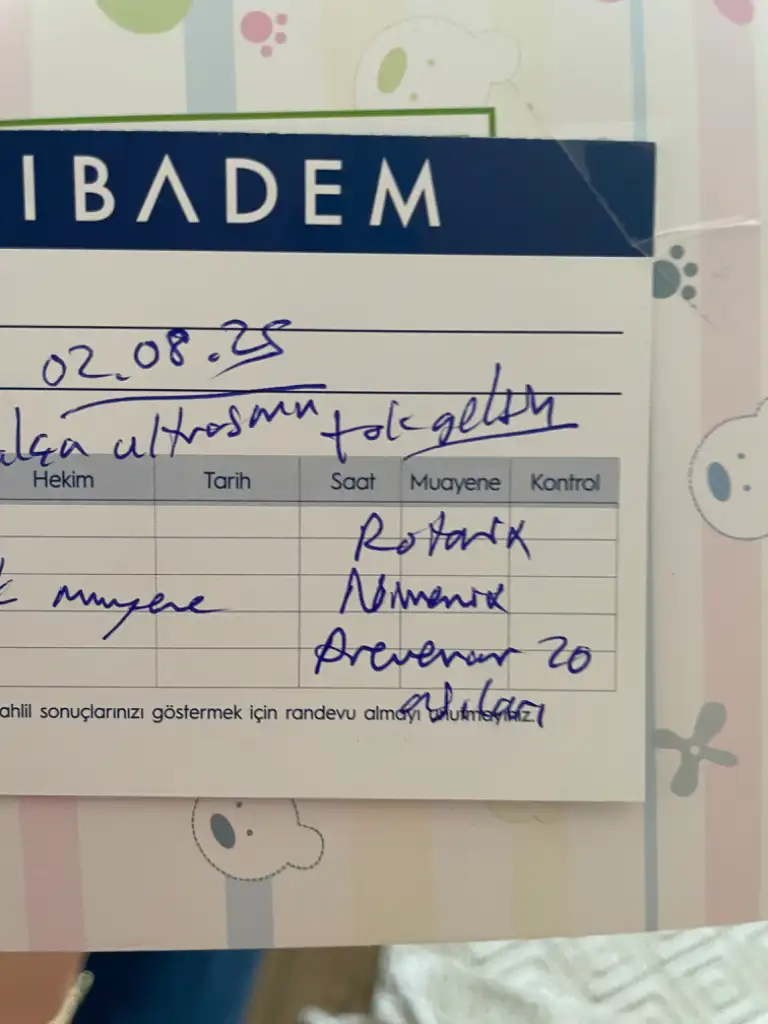 IBADEM
02.08.25
alça ultrasonu tok gelsin
Hekim Tarih Saat Muayene Kontrol
Rotarix
muayene Nimenrix
Prevenar 20
aşıları
ahlil sonuçlarınızı göstermek için randevu almayı unutmayınız.